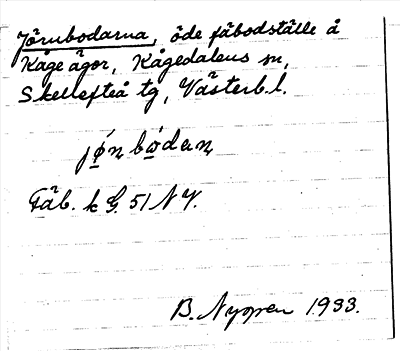 Jörnbodarna, öde fäbodställe å
Kåge ägor, Kågedalens sn,
Skellefteå tg, Västerb. l.
Täb. k G. 51 NV.
B. Nyman 1933.